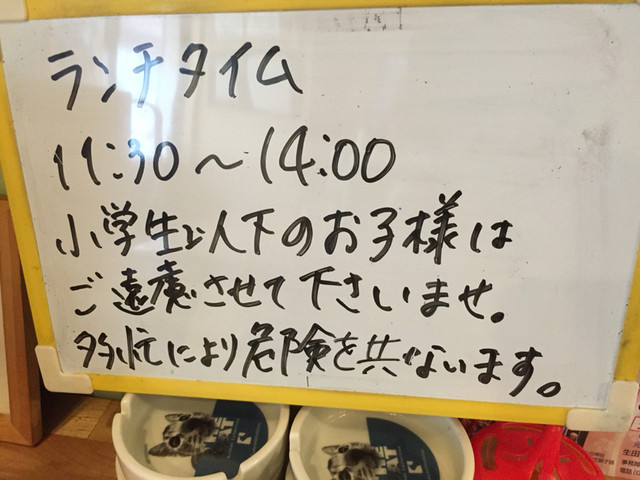 ランチタイム
11:30〜14:00
小学生以下のお子様は
ご遠慮させて下さいませ。
多忙により危険を共ないます。
生田
電話